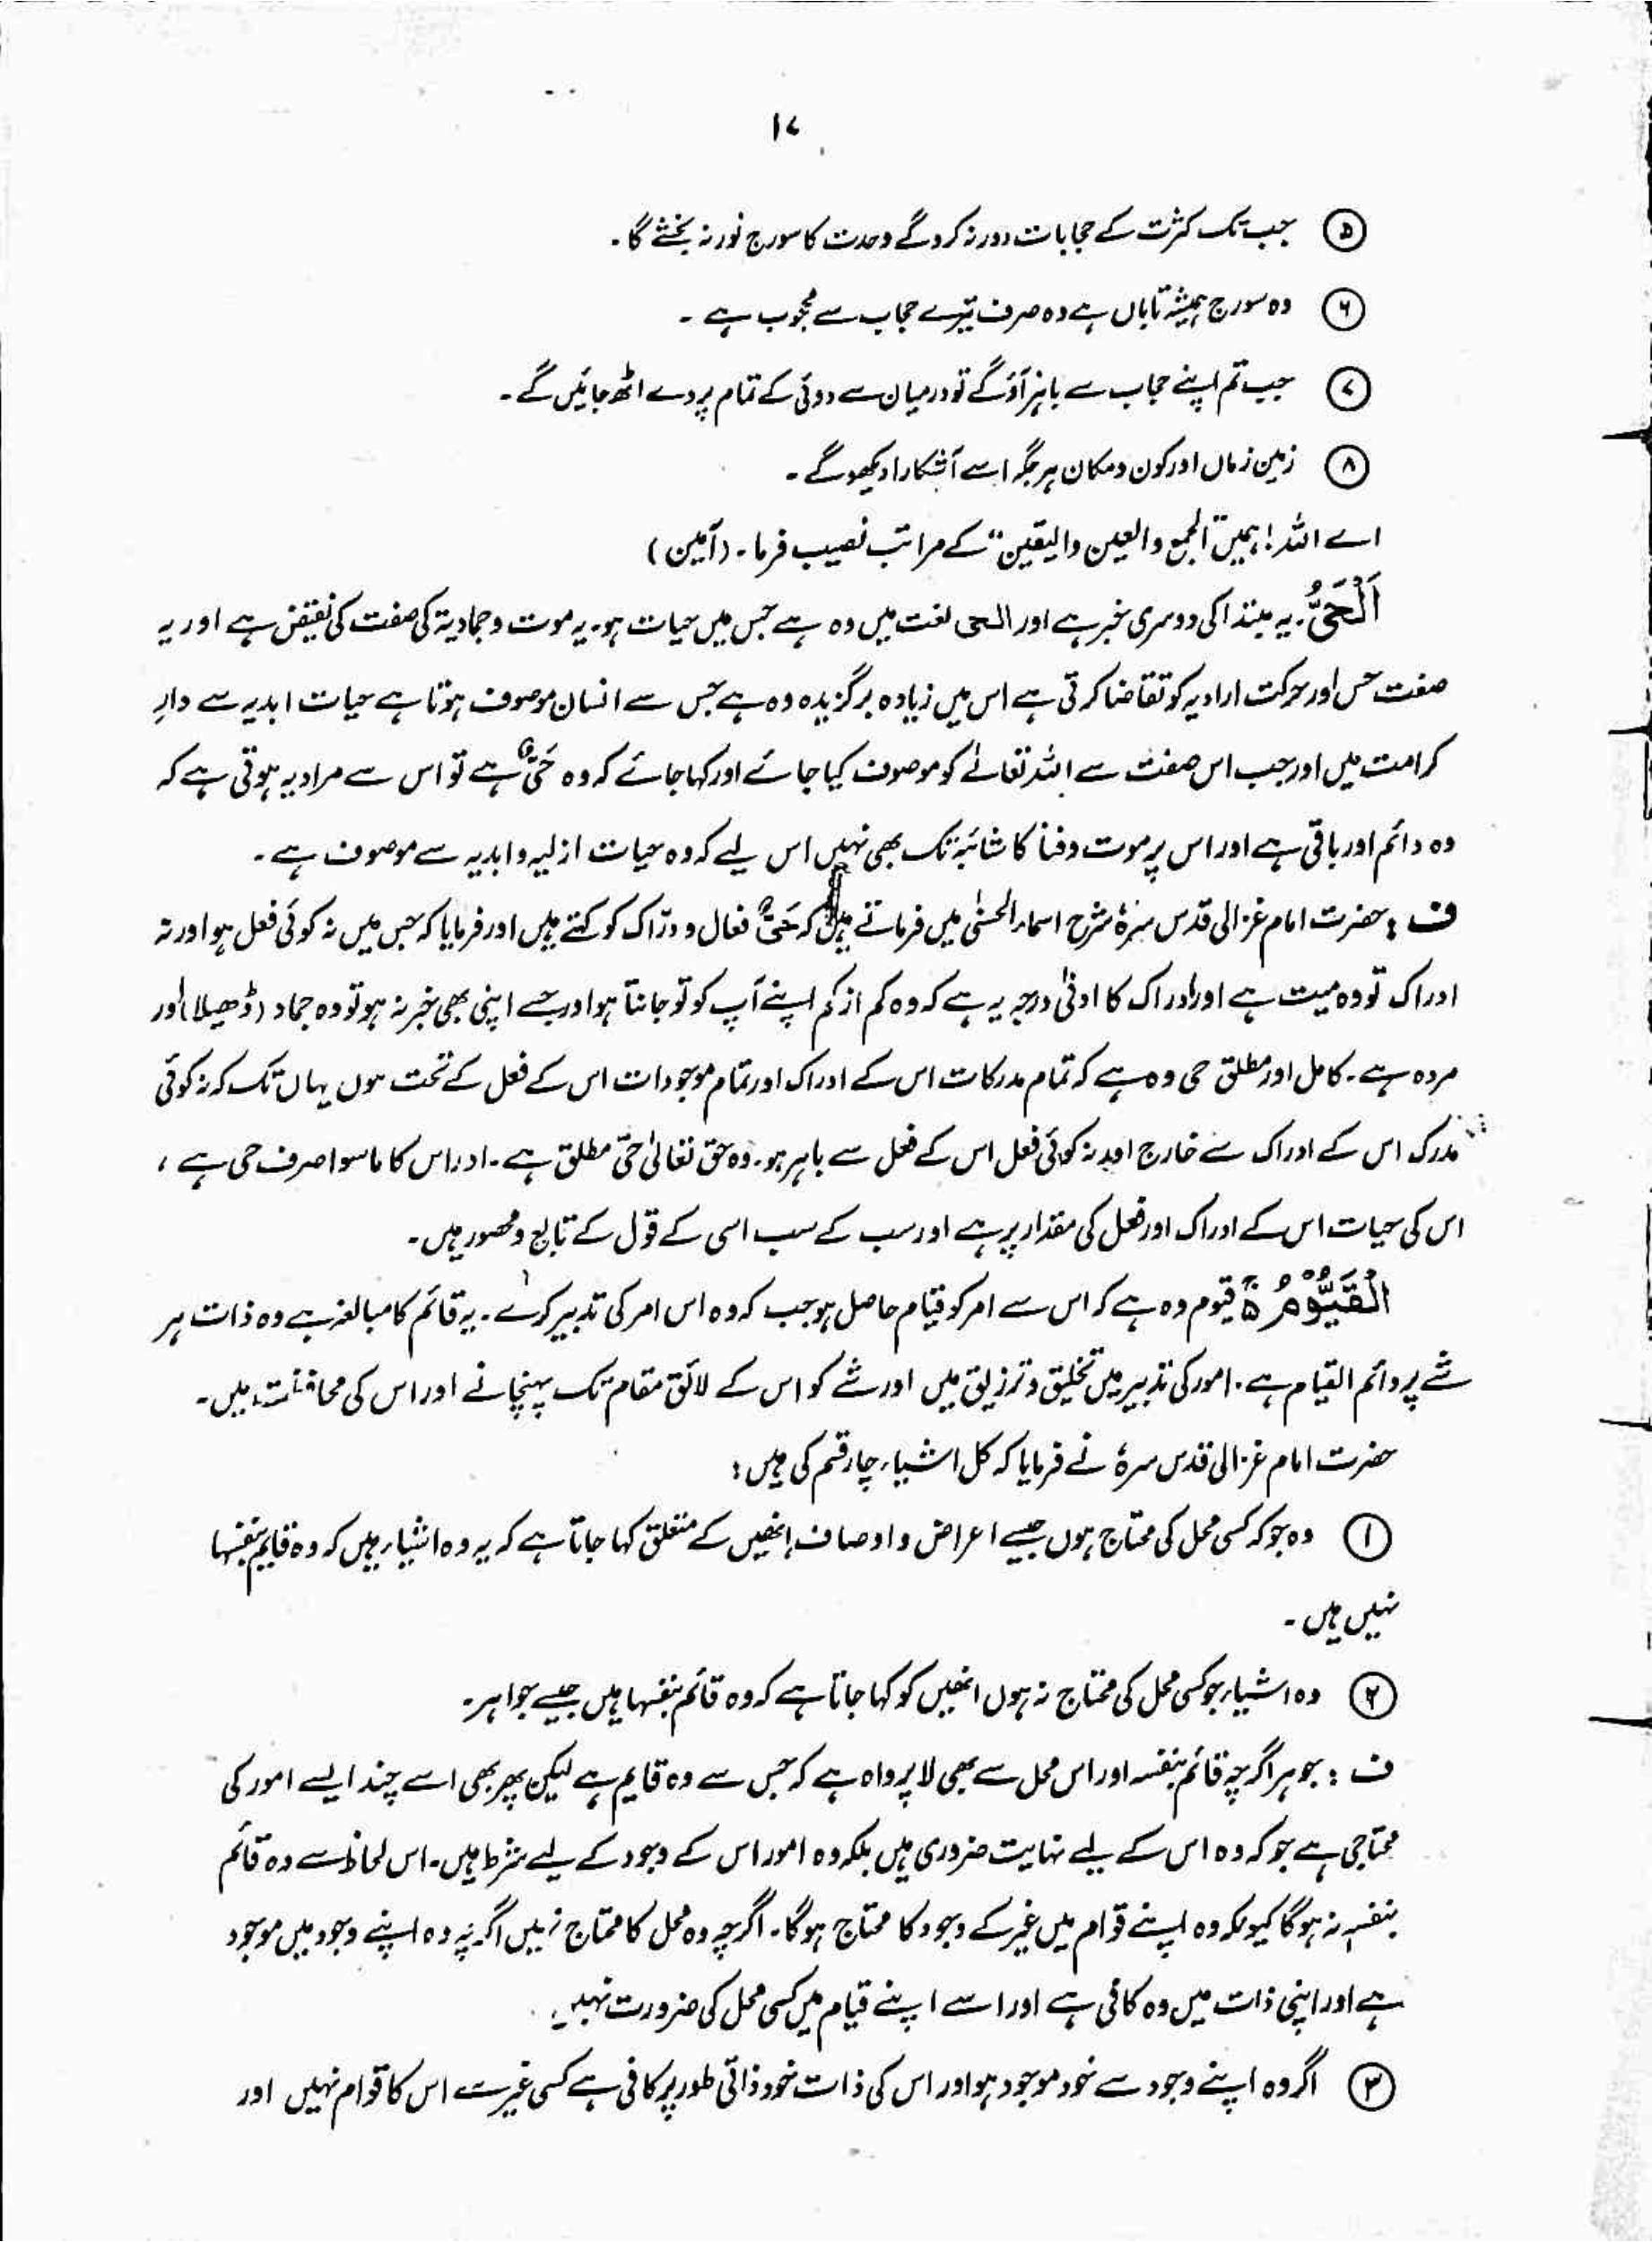 ۱۷
۵ جب تک کثرت کے حجابات دور نہ کرو گے وحدت کا سورج نور نہ بخشے گا۔
۶ وہ سورج ہمیشہ تاباں ہے وہ صرف تیرے حجاب سے محجوب ہے ۔
۷ جب تم اپنے حجاب سے باہر آؤ گے تو درمیان سے دوئی کے تمام پردے اٹھ جائیں گے۔
۸ زمین زماں اور کون و مکان ہر جگہ اسے آشکارا دیکھو گے ۔
اے اللہ! ہمیں "الجمع والعین والیقین" کے مراتب نصیب فرما۔ (آمین)
اَلْحَیُّ۔ یہ مبتدا کی دوسری خبر ہے اور الحی لغت میں وہ ہے جس میں حیات ہو۔ یہ موت و جمادیۃ کی صفت کی نقیض ہے اور یہ
صفت حس اور حرکت ارادیہ کو تقاضا کرتی ہے اس میں زیادہ برگزیدہ وہ ہے جس سے انسان موصوف ہوتا ہے حیات ابدیہ سے دارِ
کرامت میں اور جب اس صفت سے اللہ تعالےٰ کو موصوف کیا جائے اور کہا جائے کہ وہ حَیٌّ ہے تو اس سے مراد یہ ہوتی ہے کہ
وہ دائم اور باقی ہے اور اس پر موت و فنا کا شائبہ تک بھی نہیں اس لیے کہ وہ حیات ازلیہ و ابدیہ سے موصوف ہے۔
ف : حضرت امام غزالی قدس سرہٗ شرح اسماء الحسنٰی میں فرماتے ہیں کہ حَیٌّ فعال و درّاک کو کہتے ہیں اور فرمایا کہ جس میں نہ کوئی فعل ہو اور نہ
ادراک تو وہ میت ہے اور ادراک کا ادنیٰ درجہ یہ ہے کہ وہ کم از کم اپنے آپ کو تو جانتا ہو اور جسے اپنی بھی خبر نہ ہو تو وہ جماد (ڈھیلا) اور
مردہ ہے۔ کامل اور مطلق حی وہ ہے کہ تمام مدرکات اس کے ادراک اور تمام موجودات اس کے فعل کے تحت ہوں یہاں تک کہ نہ کوئی
مدرک اس کے ادراک سے خارج اور نہ کوئی فعل اس کے فعل سے باہر ہو۔ وہ حق تعالیٰ حیّ مطلق ہے۔ اور اس کا ماسوا صرف حی ہے ،
اس کی حیات اس کے ادراک اور فعل کی مقدار پر ہے اور سب کے سب اسی کے قول کے تابع و محصور ہیں۔
الْقَیُّوْمُ ۵ۚ قیوم وہ ہے کہ اس سے امر کو قیام حاصل ہو جب کہ وہ اس امر کی تدبیر کرے۔ یہ قائم کا مبالغہ ہے وہ ذات ہر
شے پر دائم القیام ہے۔ امور کی تدبیر میں تخلیق و ترزیق میں اور شے کو اس کے لائق مقام تک پہنچانے اور اس کی محافظت میں۔
حضرت امام غزالی قدس سرہٗ نے فرمایا کہ کل اشیاء چار قسم کی ہیں :
۱ وہ جو کہ کسی محل کی محتاج ہوں جیسے اعراض و اوصاف انھیں کے متعلق کہا جاتا ہے کہ یہ وہ اشیاء ہیں کہ وہ قایم بنفسہا
نہیں ہیں۔
۲ وہ اشیاء جو کسی محل کی محتاج نہ ہوں انھیں کو کہا جاتا ہے کہ وہ قائم بنفسہا ہیں جیسے جواہر۔
ف : جوہر اگرچہ قائم بنفسہ اور اس محل سے بھی لا پرواہ ہے کہ جس سے وہ قایم ہے لیکن پھر بھی اسے چند ایسے امور کی
محتاجی ہے جو کہ وہ اس کے لیے نہایت ضروری ہیں بلکہ وہ امور اس کے وجود کے لیے شرط ہیں۔ اس لحاظ سے وہ قائم
بنفسہٖ نہ ہوگا کیونکہ وہ اپنے قوام میں غیر کے وجود کا محتاج ہوگا۔ اگرچہ وہ محل کا محتاج نہیں اگرچہ وہ اپنے وجود میں موجود
ہے اور اپنی ذات میں وہ کافی ہے اور اسے اپنے قیام میں کسی محل کی ضرورت نہیں۔
۳ اگر وہ اپنے وجود سے خود موجود ہو اور اس کی ذات خود ذاتی طور پر کافی ہے کسی غیر سے اس کا قوام نہیں اور